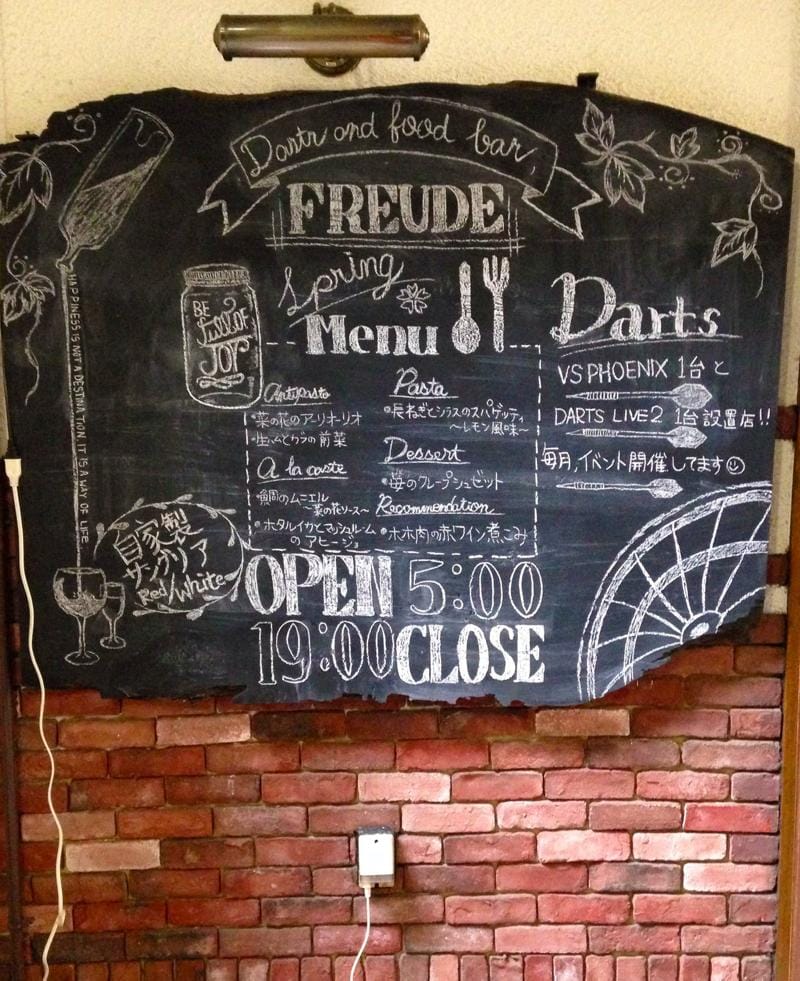 Darts and food bar,
FREUDE
Spring
Menu
BE
full of
JOY
HAPPINESS IS NOT A DESTINATION. IT IS A WAY OF LIFE.
Antipasto
・菜の花のアーリオ・オリオ
・生ハムと の前菜
A la carte
・真鯛のムニエル
～菜の花ソース～
・ホタルイカとマッシュルーム
のアヒージョ
Pasta
・長ねぎとシラスのスパゲッティ
～レモン風味～
Dessert
・苺のクレープシュゼット
Recommendation
・ホホ肉の赤ワイン煮こみ
Darts
VS PHOENIX 1台と
DARTS LIVE2 1台設置店!!
毎月、イベント開催してます☺
自家製
サングリア
Red/White
OPEN 5:00
19:00 CLOSE